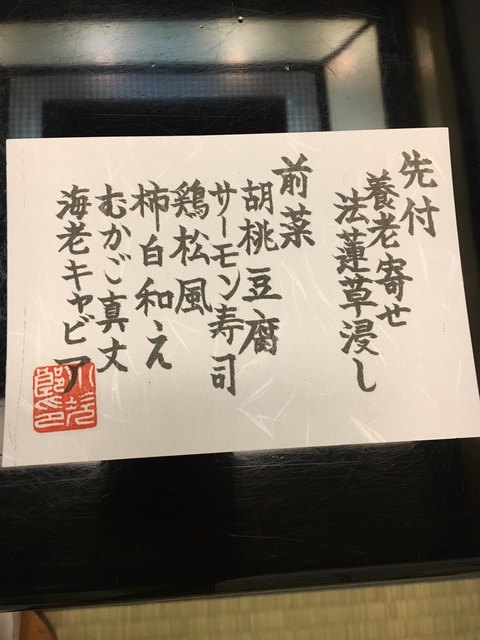 先付
養老寄せ
法蓮草浸し
前菜
胡桃豆腐
サーモン寿司
鶏松風
柿白和え
むかご真丈
海老キャビア